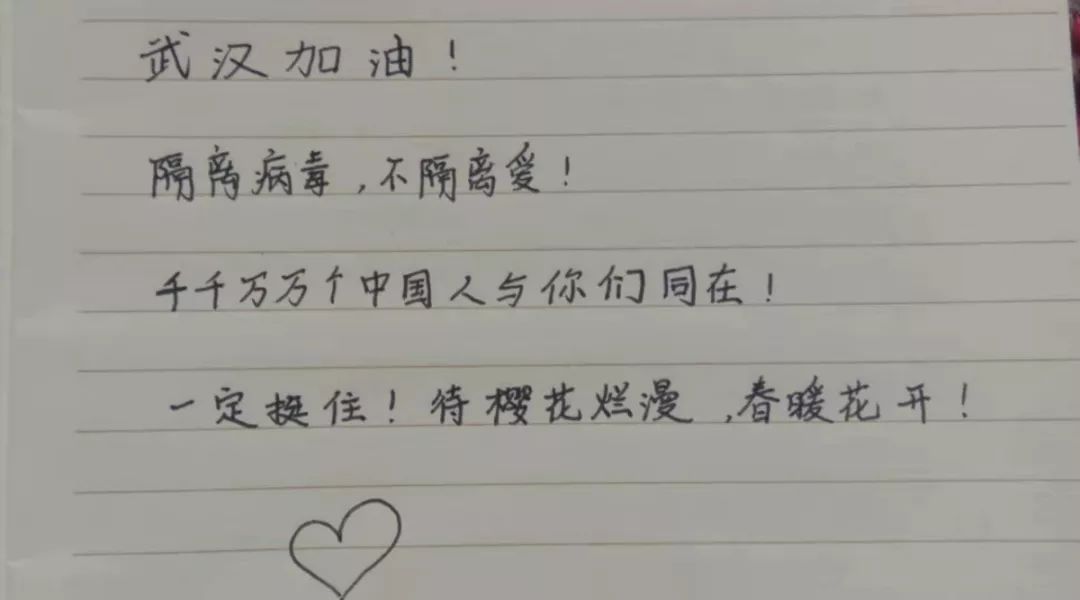 武汉加油！
隔离病毒，不隔离爱！
千千万万个中国人与你们同在！
一定挺住！待樱花烂漫，春暖花开！